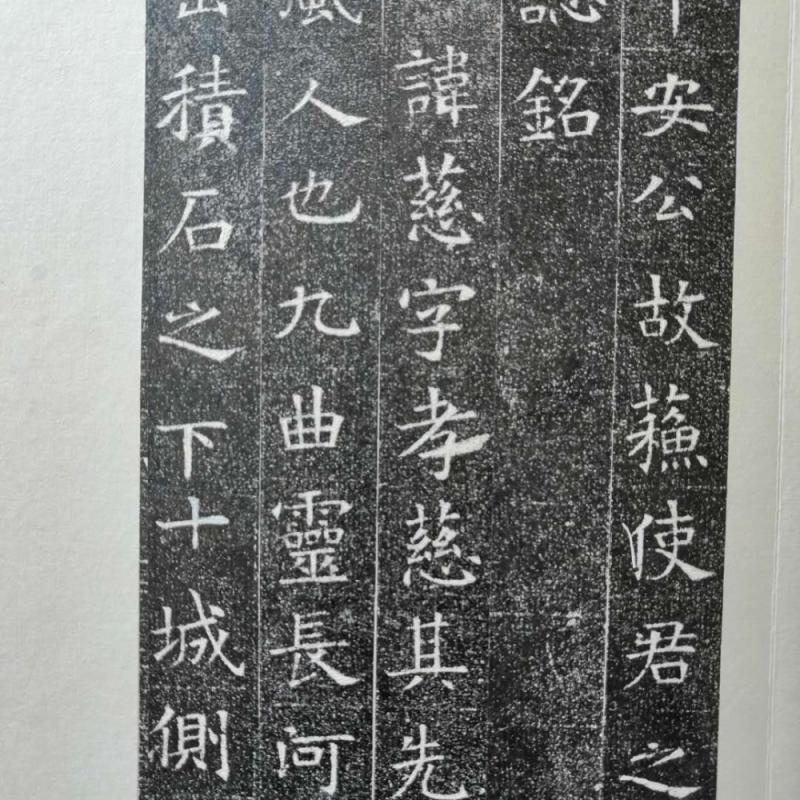 安公故蘓使君之
誌銘
諱慈字孝慈其先
人也九曲靈長河
積石之下十城側